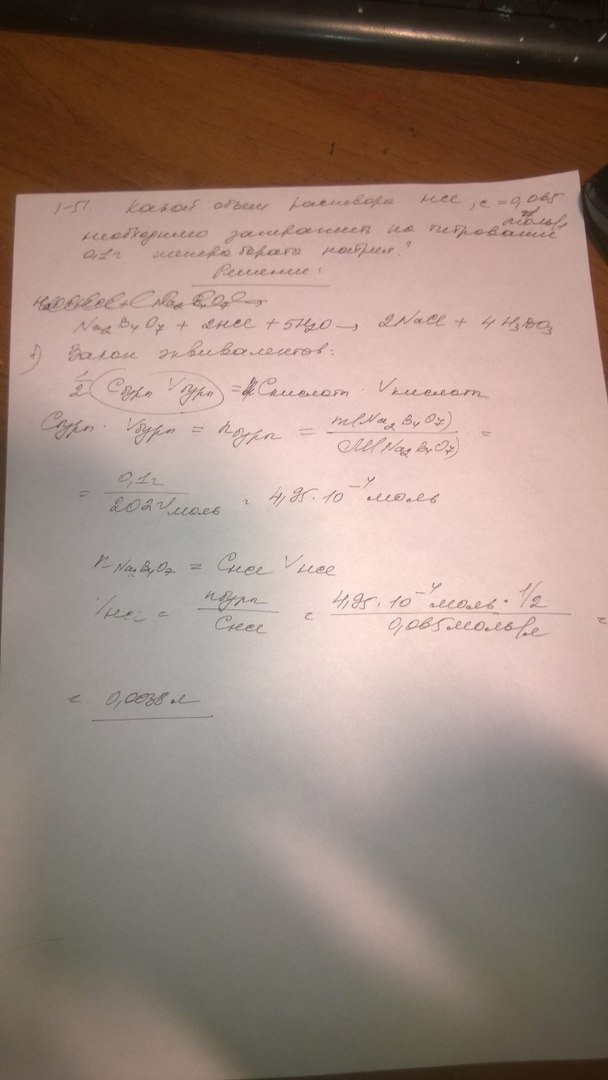 1-51. Какой объем раствора HCl, c = 0,065 моль/л
необходимо затратить на титрование
0,1 г тетрабората натрия?
Решение:
Na₂B₄O₇ + 2HCl + 5H₂O → 2NaCl + 4H₃BO₃
1) Закон эквивалентов:
1/2 Cбуры Vбуры = Cкислот · Vкислот
Cбуры · Vбуры = nбуры = m(Na₂B₄O₇) / M(Na₂B₄O₇) =
= 0,1г / 202 г/моль = 4,95 · 10⁻⁴ моль
n Na₂B₄O₇ = CHCl VHCl
VHCl = nбуры / CHCl = 4,95 · 10⁻⁴ моль · 1/2 / 0,065 моль/л =
= 0,0038 л